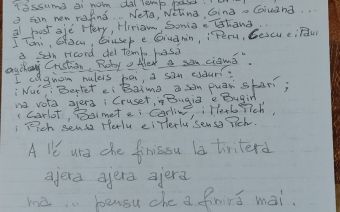 Tassuma ai nom dal temp pasà
a san nen rafina ... Neta, Netina, Gina o Giuana ...
al post ajè Mery, Miriam, Sonia e Tatiana ..
I Toni, Giacu, Giusep e Giuanin, i Peru, Cescu e i Pauli
a san ricord del temp pasà
Cristian, Roby o Alex a san ciamà.
I cugnom nuleis poi, a san esauri:
i Nuié, Bertet e i Baima a san quasi spari;
na vota ajera i Cruset, i Bugia e Bugin,
i Carlot, Baimet e i Carlin, i Merlo Pich,
i Pich sensa Merlu e i Merlu sensa Pich.
A l'è ura che finissu la tiritera
ajera ajera ajera
ma ... pensu che a finirà mai.